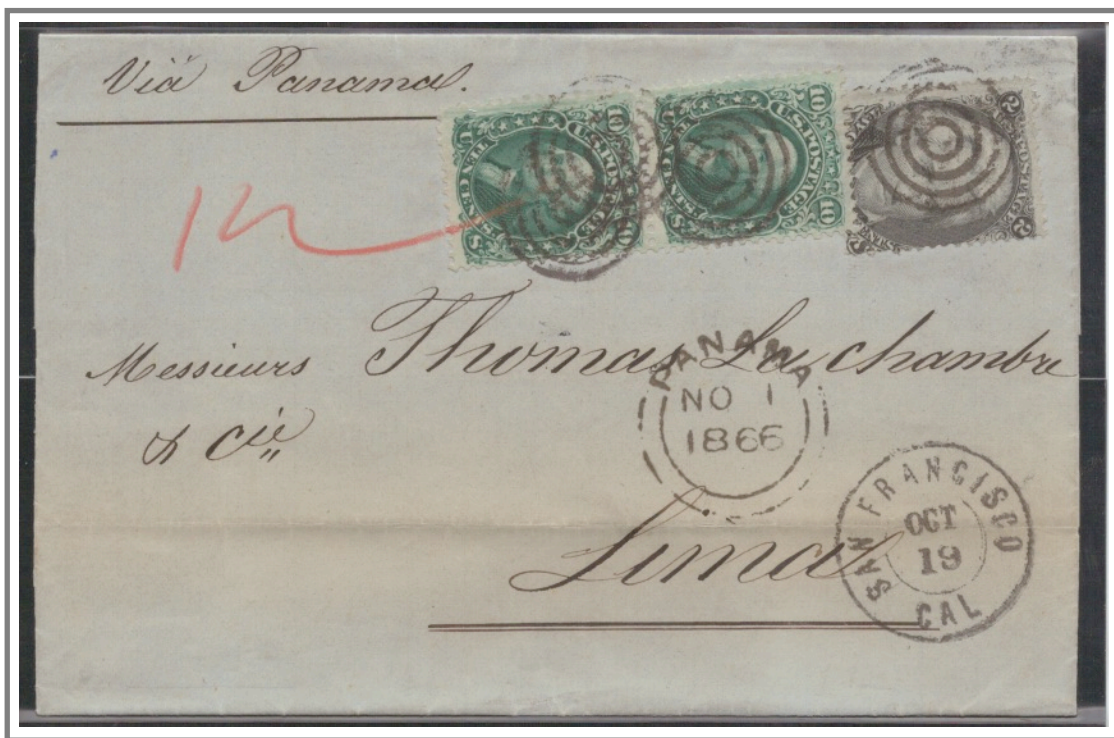 Viâ Panama.
10 U.S. POSTAGE 10
TEN CENTS
10 U.S. POSTAGE 10
TEN CENTS
2 POSTAGE 2
12
Messieurs Thomas La chambre
& Cie
PANAMA
NO 1
1866
SAN FRANCISCO
OCT
19
CAL
Lima